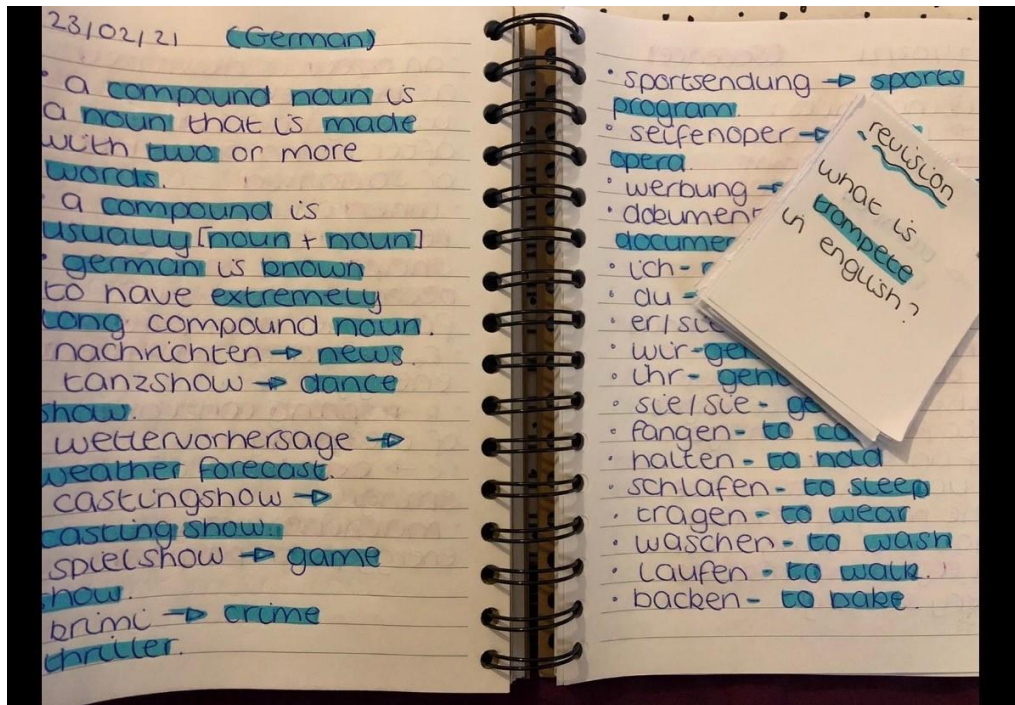 23/02/21 (German)
• a compound noun is
a noun that is made
with two or more
words.
• a compound is
usually [noun + noun]
• german is known
to have extremely
long compound noun.
nachrichten → news.
tanzshow → dance
show.
wettervorhersage →
weather forecast.
castingshow →
casting show.
spielshow → game
show.
krimi → crime
thriller.
• sportsendung → sports
program.
• seifenoper →
opera.
• werbung →
• dokument
documen
• ich -
• du -
• er/sie
• wir - geh
• ihr - geht
• sie/sie - ge
• fangen - to ca
• halten - to hold
• schlafen - to sleep
• tragen - to wear
• waschen - to wash
• laufen - to walk.
• backen - to bake.
revision
what is
trompete
in english?